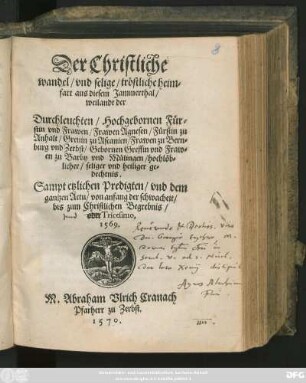 8
Der Christliche
wandel/ vnd selige/ tröstliche heim-
fart aus diesem Jammerthal/
weilandt der
Durchleuchten/ Hochgebornen Für-
stin vnd Frawen/ Frawen Agnesen/ Fürstin zu
Anhalt/ Grenin zu Ascanien/ Frawen zu Bern-
burg vnd Zerbst/ Gebornen Greffin vnd Fraw-
en zu Barby vnd Mülingen/ hochlöb-
licher/ seliger vnd heiliger ge-
dechtnis.
Sampt etzlichen Predigten/ vnd dem
gantzen Actu/ von anfang der schwacheit/
bis zum Christlichen Begrebnis/
oder Tricesimo,
1569.
M. Abraham Vlrich Cranach
Pfarherr zu Zerbst.
1570.